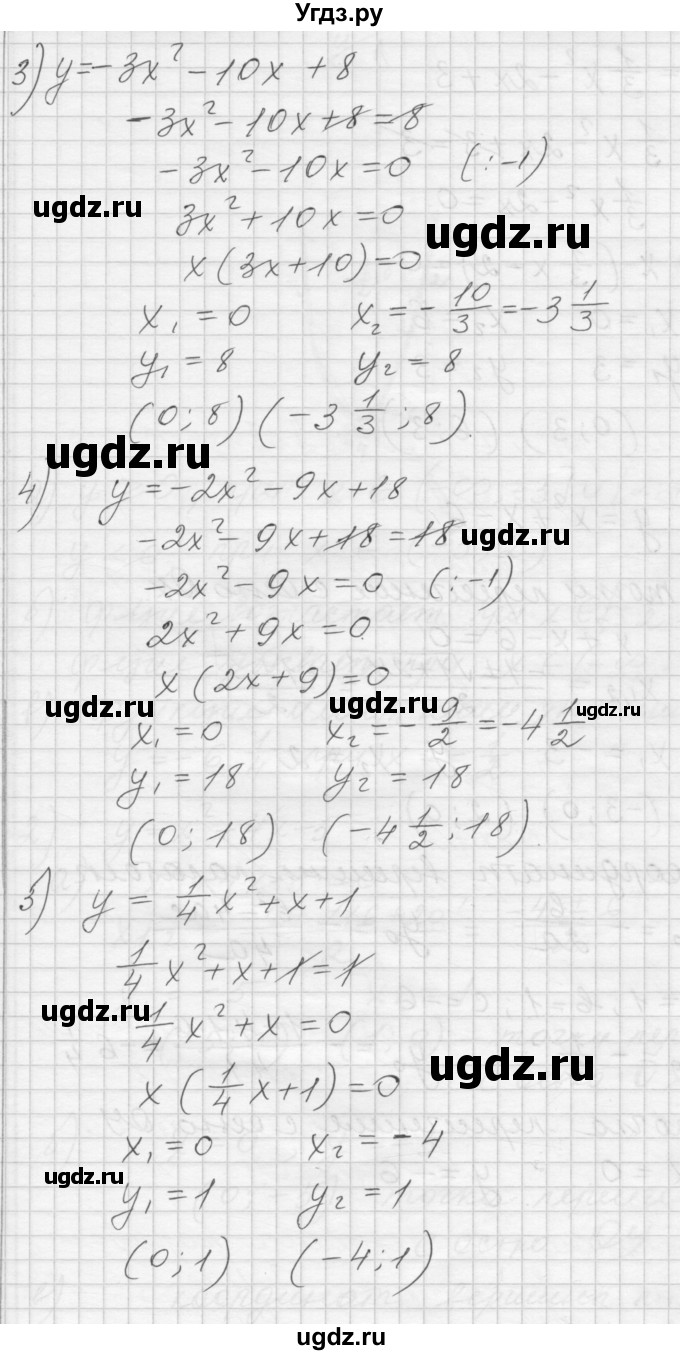 Угдз.ру
3) y=-3x²-10x+8
-3x²-10x+8=8
-3x²-10x=0 (:-1)
ugdz.ru
3x²+10x=0
ugdz.ru
x(3x+10)=0
x₁=0 x₂=-10/3=-3 1/3
y₁=8 y₂=8
(0;8) (-3 1/3;8).
ugdz.ru
4) y=-2x²-9x+18
-2x²-9x+18=18
ugdz.ru
-2x²-9x=0 (:-1)
2x²+9x=0
x(2x+9)=0
ugdz.ru ugdz.ru ugdz.ru
x₁=0 x₂=-9/2=-4 1/2
y₁=18 y₂=18
(0;18) (-4 1/2;18).
3) y=1/4x²+x+1
1/4x²+x+1=1
ugdz.ru
1/4x²+x=0
ugdz.ru
x(1/4x+1)=0
x₁=0 x₂=-4
ugdz.ru
y₁=1 y₂=1
(0;1) (-4;1)
ugdz.ru